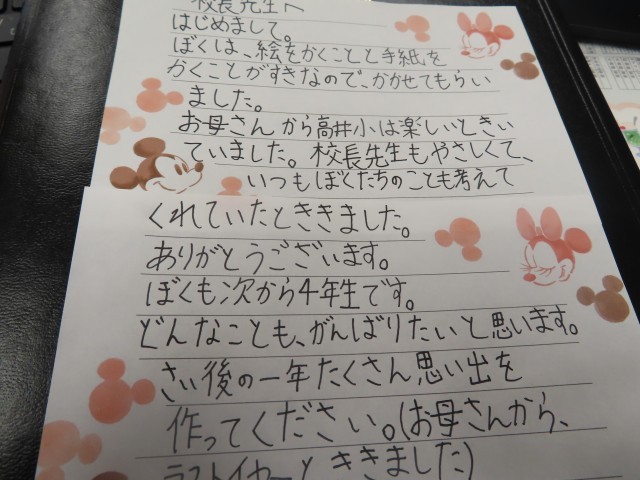 校長先生へ
はじめまして。
ぼくは、絵をかくことと手紙を
かくことがすきなので、かかせてもらい
ました。
お母さんから高井小は楽しいときい
ていました。校長先生もやさしくて、
いつもぼくたちのことも考えて
くれていたとききました。
ありがとうございます。
ぼくも次から4年生です。
どんなことも、がんばりたいと思います。
さい後の一年たくさん思い出を
作ってください。(お母さんから、
ラストイヤーとききました)